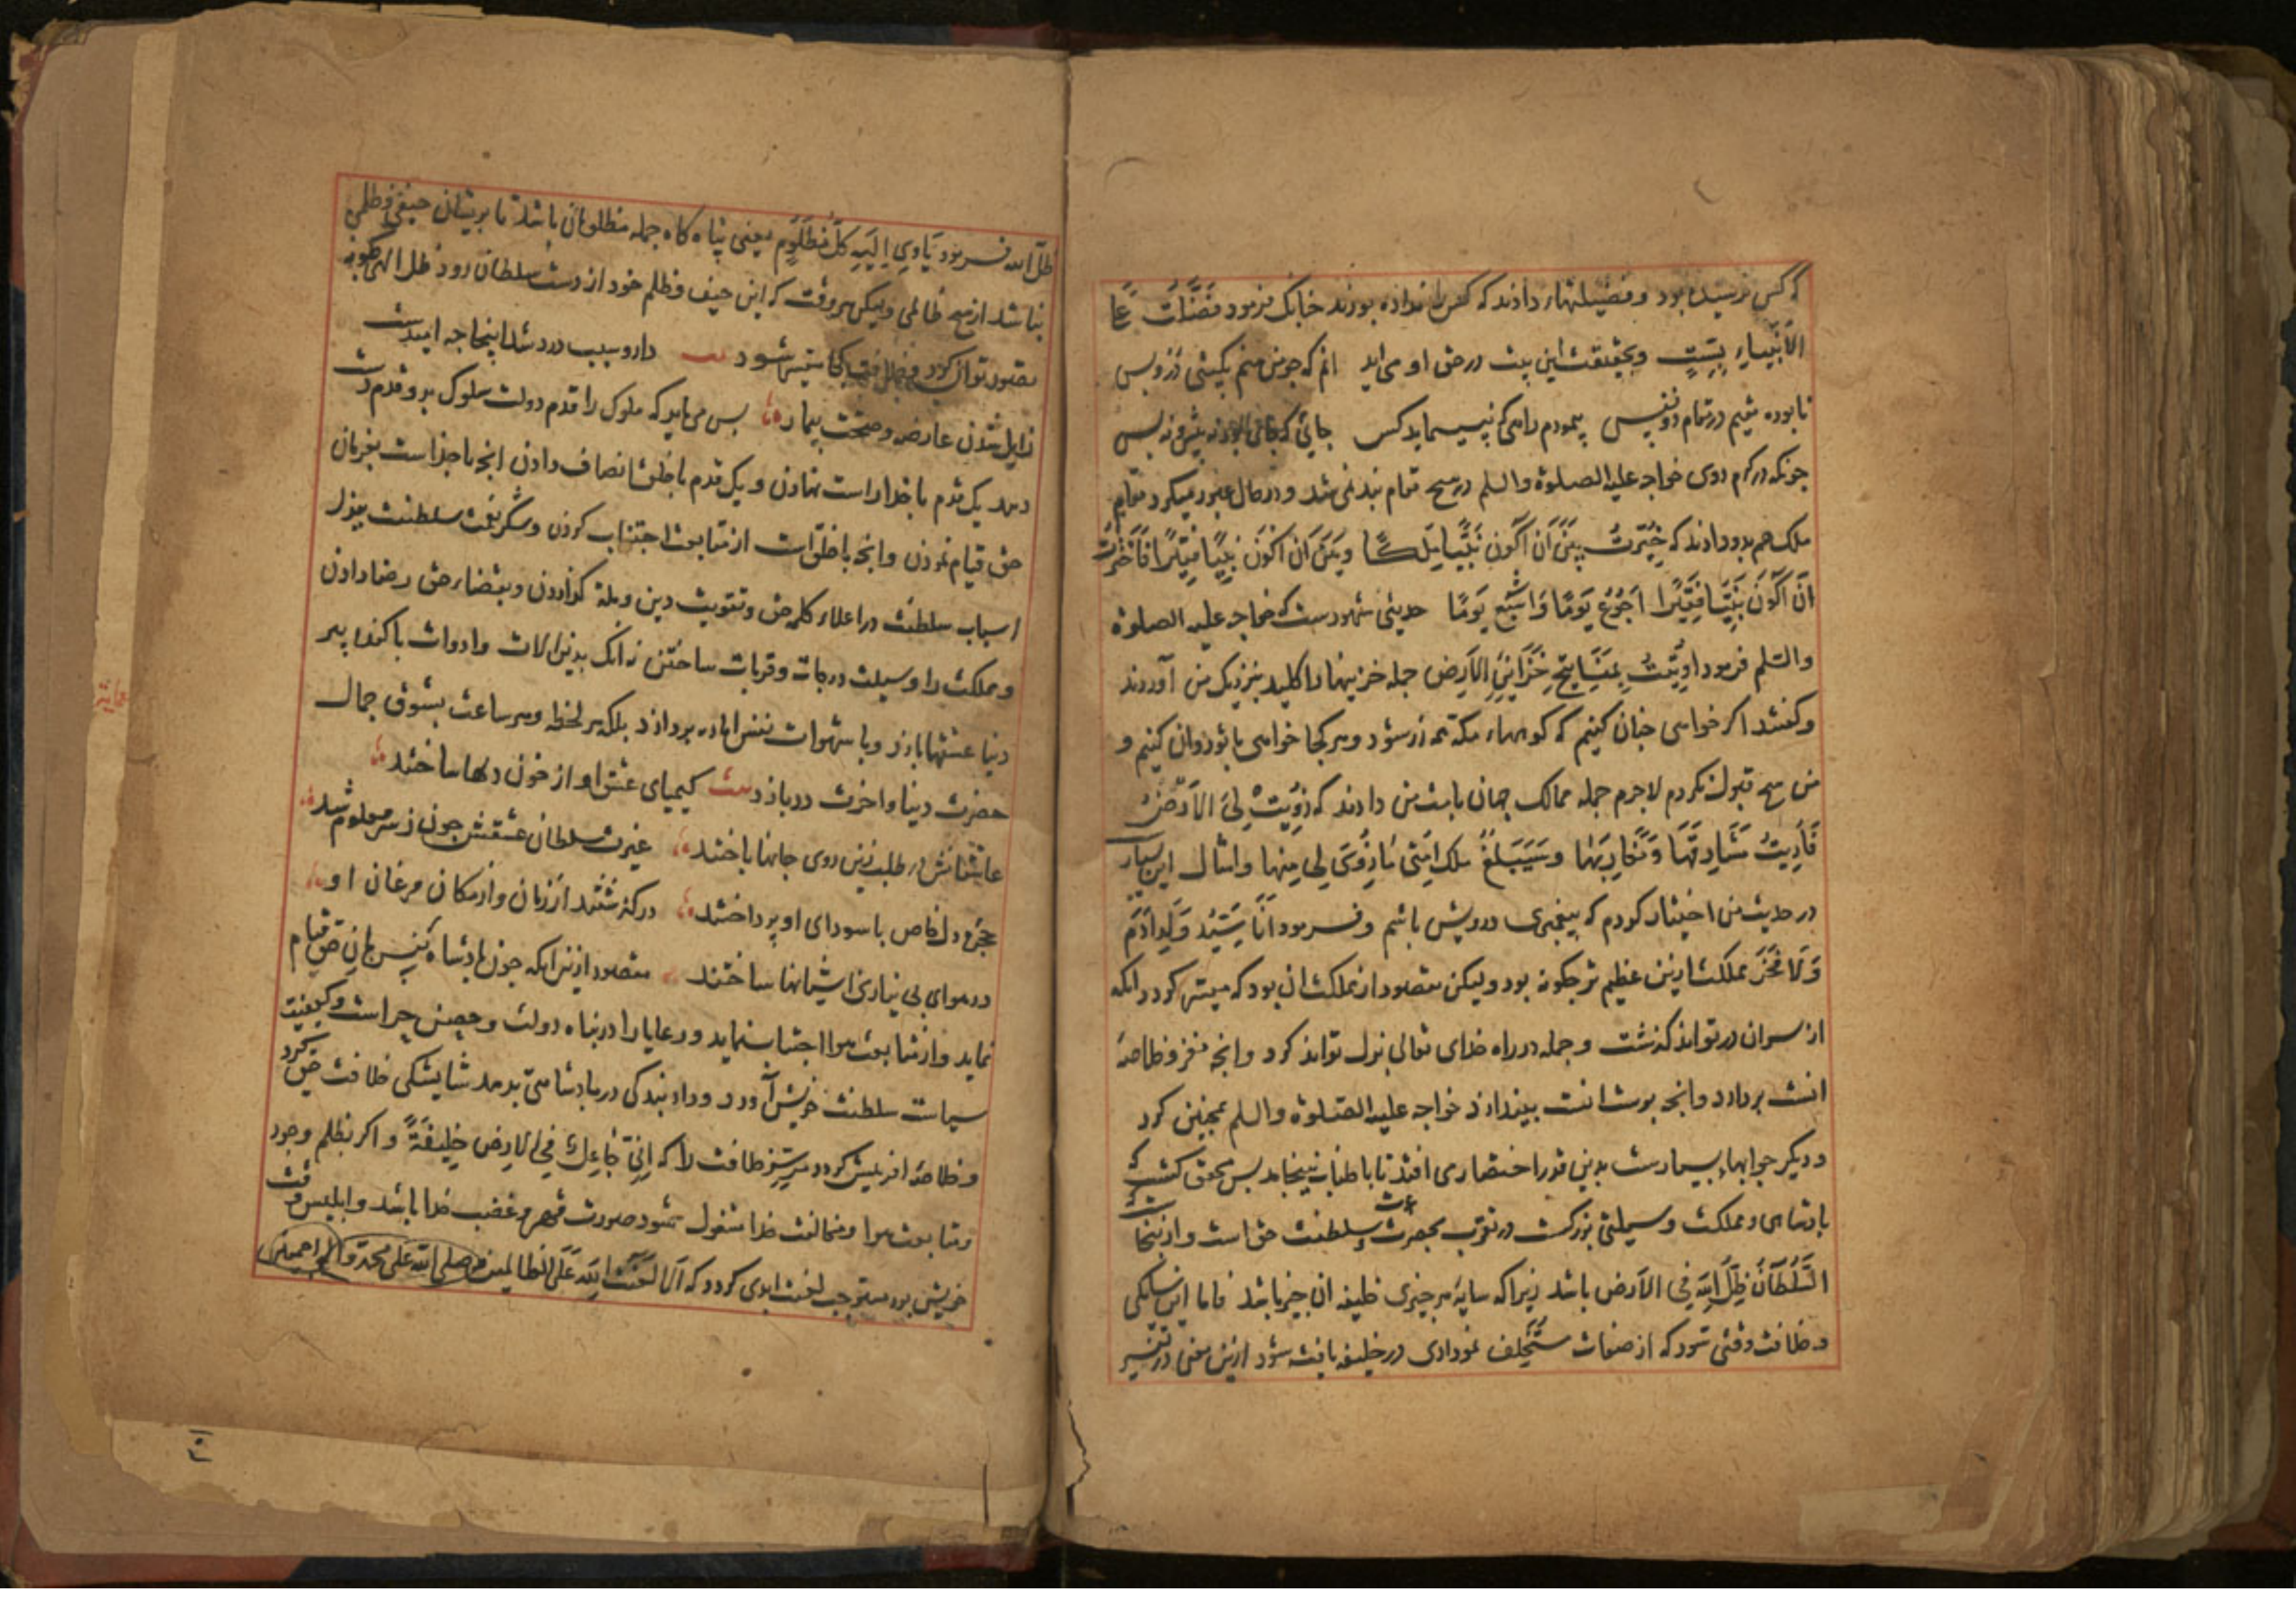 که کس نرسیده بود و فضیلتها دادند که کس را نداده بودند جنانک فرمود فضلت علی
الانبیاء بست و بحقیقت این بیت در حق او می آید انم که جو من منم بکیتی ز
نابوده شیم در تمام پیمودم راهی که نه پیماید کس جائی که نه پیش و نه پس
جونکه در کرم روی خواجه علیه الصلوة والسلم در هیح مقام بند نمی شد و در حال عبور میکرد مقام
ملک هم بدو دادند که خیرت بین ان اکون نبیا ملکا و بین ان اکون نبیا فقیرا فاخترت
ان اکون نبیا فقیرا اجوع یوما واشبع یوما حدیثی مشهورست که خواجه علیه الصلوة
والسلم فرمود اوتیت بمفاتیح خزاین الارض جمله خزینها را کلید بنزدیک من آوردند
و کفتند اکر خواهی جنان کنیم که کوههاء مکه همه زر شود و هر کجا خواهی با تو روان کنیم و
من هیح قبول نکردم لاجرم جمله ممالک جهان بامت من دادند که زویت لی الارض
فاریت مشارقها و مغاربها و سیبلغ ملک امتی ما زوی لی منها و امثال این بسیار
در حدیث من اختیار کردم که بیغمبری درویش باشم و فرمود انا سید ولد ادم
ولا فخر مملکت ازین عظیم تر جکونه بود ولیکن مقصود از مملکت ان بود که میسر کردد انکه
از سر ان در تواند کذشت و جمله در راه خدای تعالی بذل تواند کرد و انجه مغز و خلاصهٔ
انست بردارد و انجه بوست انست بیندازد خواجه علیه الصلوة والسلم همجنین کرد
و دیکر جوابها بسیارست بدین قدر اختصار می افتد تا باطناب نینجامد بس محقق کشت که
بادشاهی و مملکت وسیلتی بزرکست در تقرب بحضرت عزت و سلطنت حق است و ازینجاست که
السلطان ظل الله فی الارض باشد زیراکه سایهٔ هر جیزی خلیفه ان جیز باشد فاما این
و خلافت وقتی شود که از صفات مستخلف نموداری در خلیفه یافت شود ازین معنی در تفسیر
ظل الله فرمود یاوی الیه کل مظلوم یعنی پناه کاه جمله مظلومان باشد تا بریشان حیفی و ظلمی
نباشد از هیح ظالمی ولیکن هر وقت که این حیف و ظلم خود از دست سلطان رود ظل الهی جکونه
تصور توان کرد و خلافت کجا میسر شود بیت دارو سبب درد شد اینجا جه امیدست
زایل شدن عارضه و صحت بیمار بس می باید که ملوک را قدم دولت سلوک بدو قدم دست
دهد یک قدم با خدا راست نهادن و یک قدم با خلق انصاف دادن انجه با خداست بفرمان
حق قیام نمودن و انجه با خلق است از متابعت اجتناب کردن و شکر نعمت سلطنت ببذل
اسباب سلطنت در اعلاء کلمه حق و تقویت دین و ملة کزاردن و بقضاء حق رضا دادن
و مملکت را وسیلت درجات و قربات ساختن نه انک بدین الات وادوات باکنده پیر
دنیا عشقها بازد و با شهوات نفس اماره بردازد بلکه هر لحظه و هر ساعت بشوق جمال
حضرت دنیا و اخرت در بازد بیت کیمیای عشق او از خون دلها ساختند
عاشقانش در طلب زین روی جانها باختند غیرت سلطان عشقش جون ز سر معلوم شد
حجرهٔ دل خاص با سودای او پرداختند در کذشتند از زمان و از مکان مرغان او
در هوای بی نیازی اشیانها ساختند مقصود ازین انکه جون بادشاه بفرمان حق قیام
نماید و از متابعت هوا اجتناب نماید و رعایا را در پناه دولت و حصن حراست و کیفیت
سیاست سلطنت خویش آورد و داد بندکی در بادشاهی بدهد شایستکی خلافت حق کیرد
و خلاصهٔ افرینش کردد و سر خلافت را که انی جاعل فی الارض خلیفة و اکر بظلم و جور
و متابعت هوا و مخالفت خدا مشغول شود صورت قهر و غضب خدا باشد و ابلیس وقت
خویش بود مستوجب لعنت ابدی کردد که الا لعنت الله علی الظالمین و صلی الله علی محمد و اله اجمعین